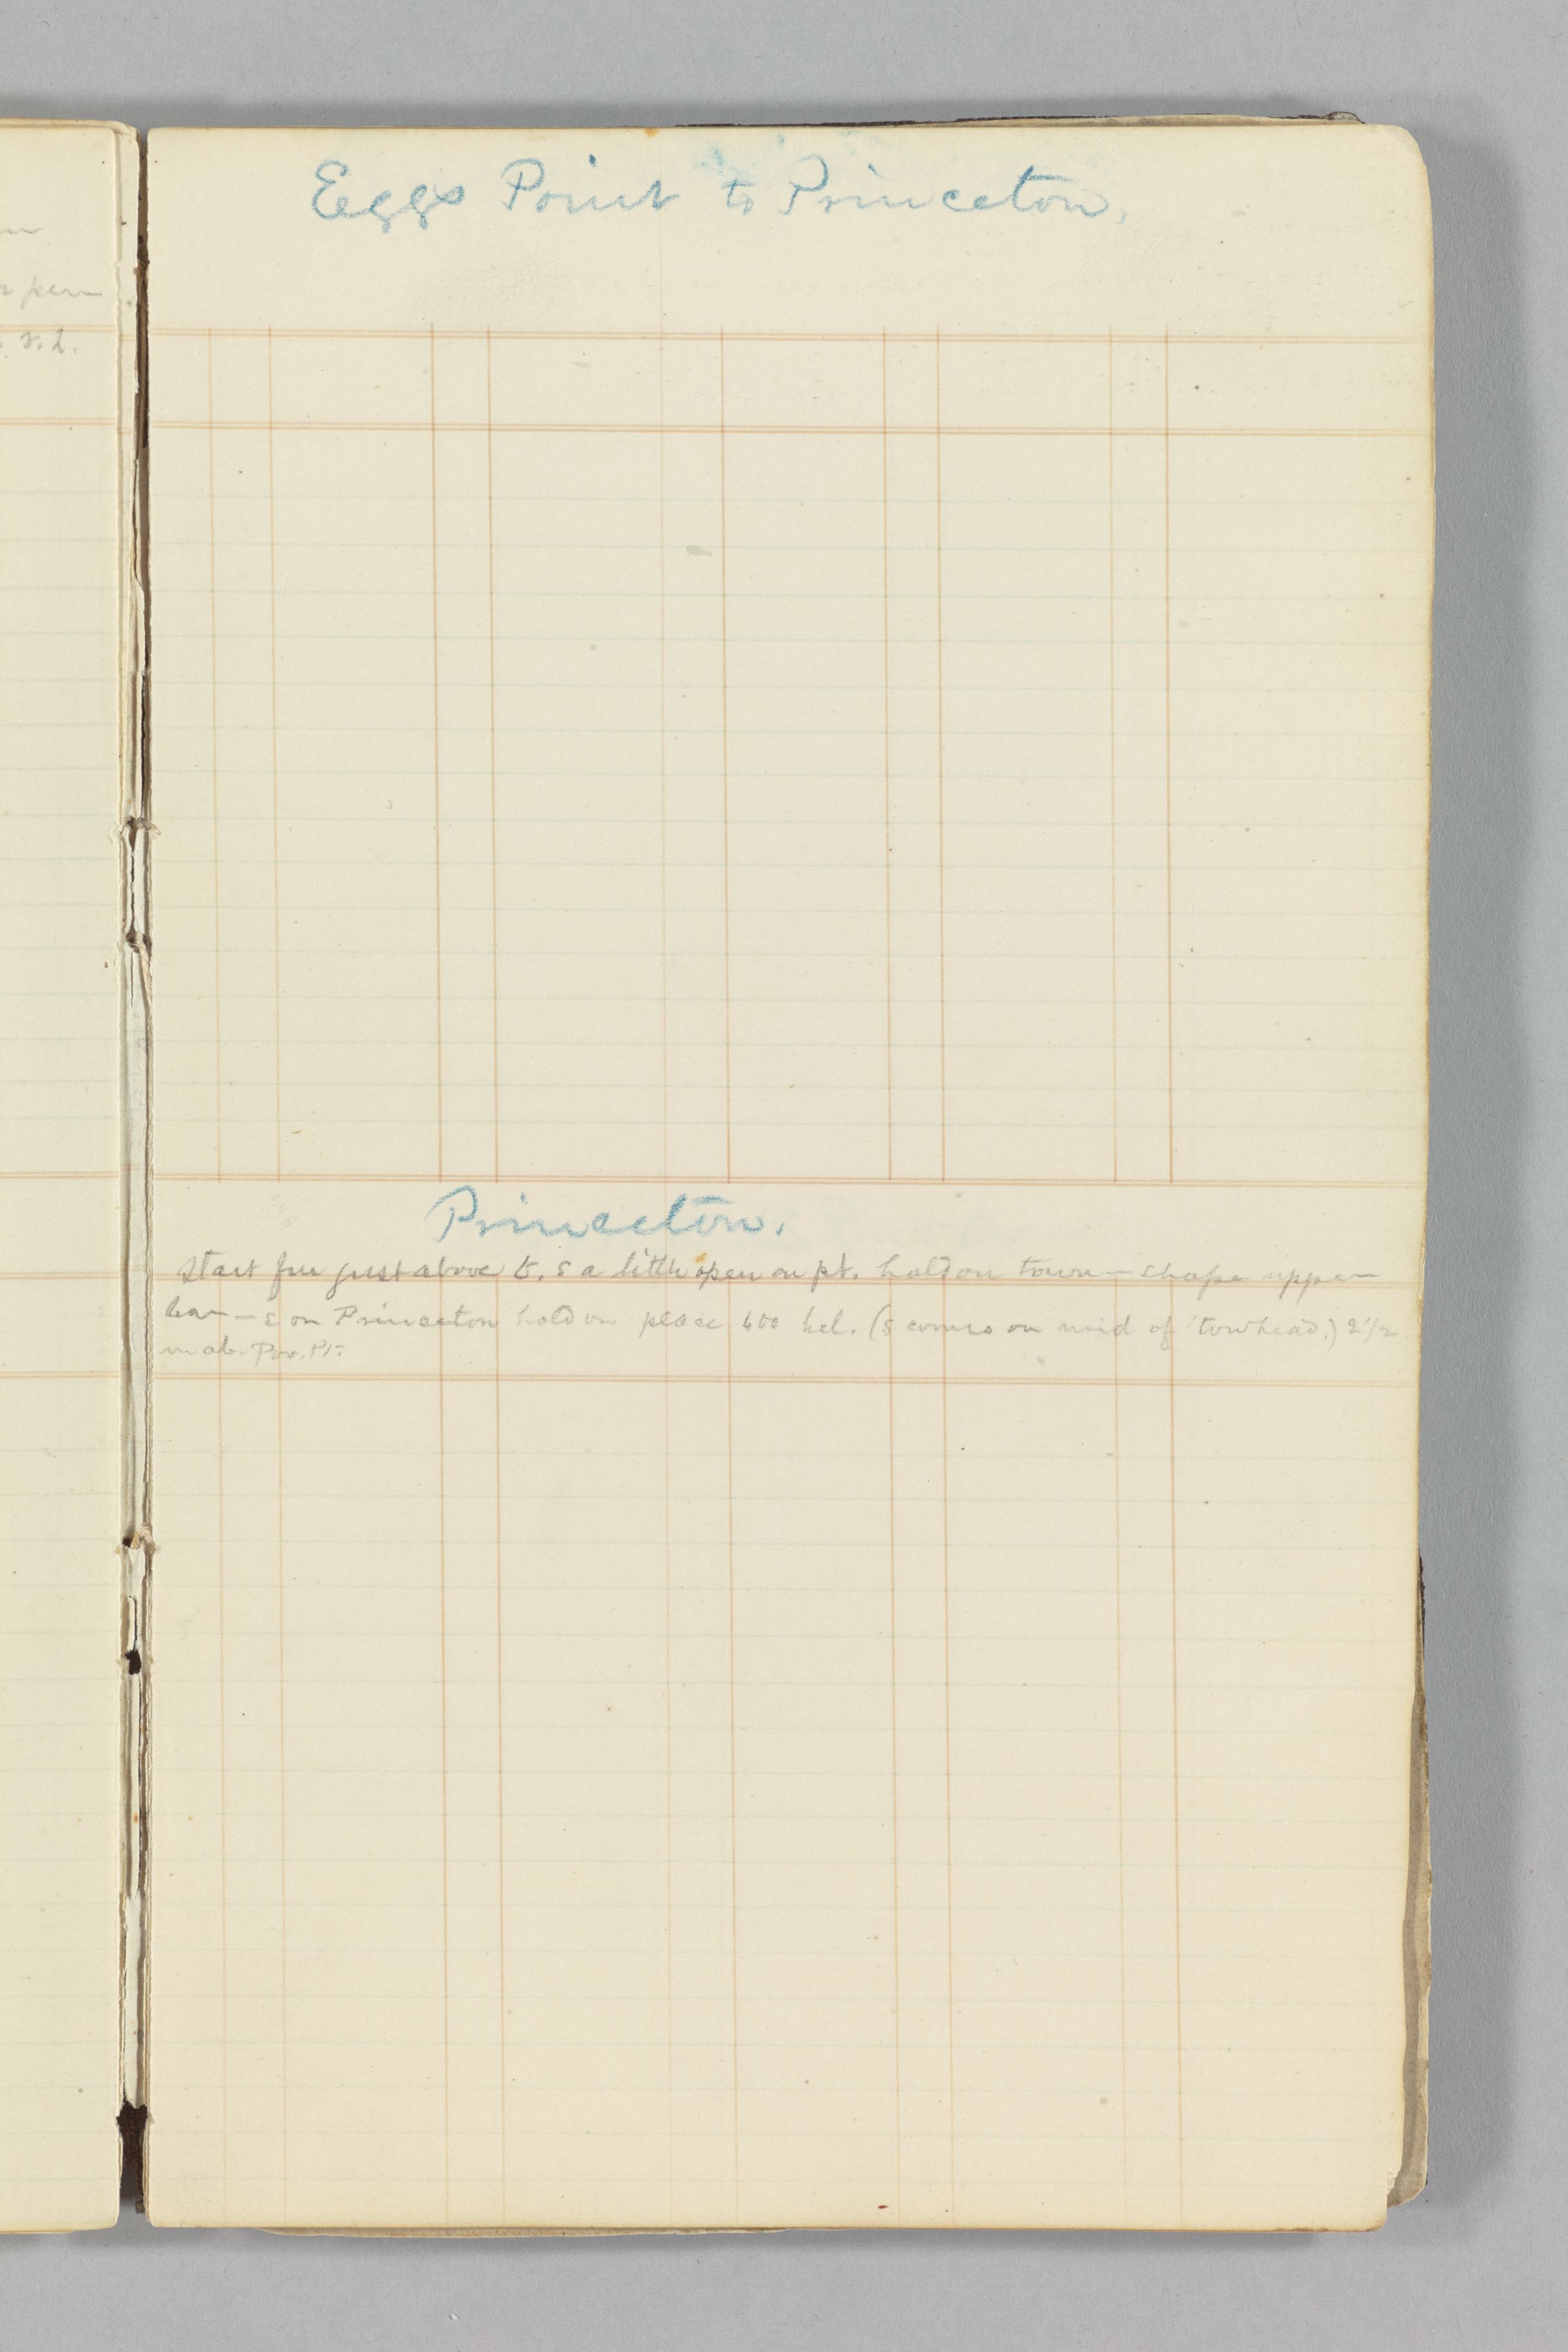 per
r. 2.
Eggs Point to Princeton.
Princeton.
Start just above t. s a little open on pt. hold on town — shape upper
bar — s on Princeton hold on place 400 bel. (s comes on mid of towhead.) 2 1/2
m ab. Pt.